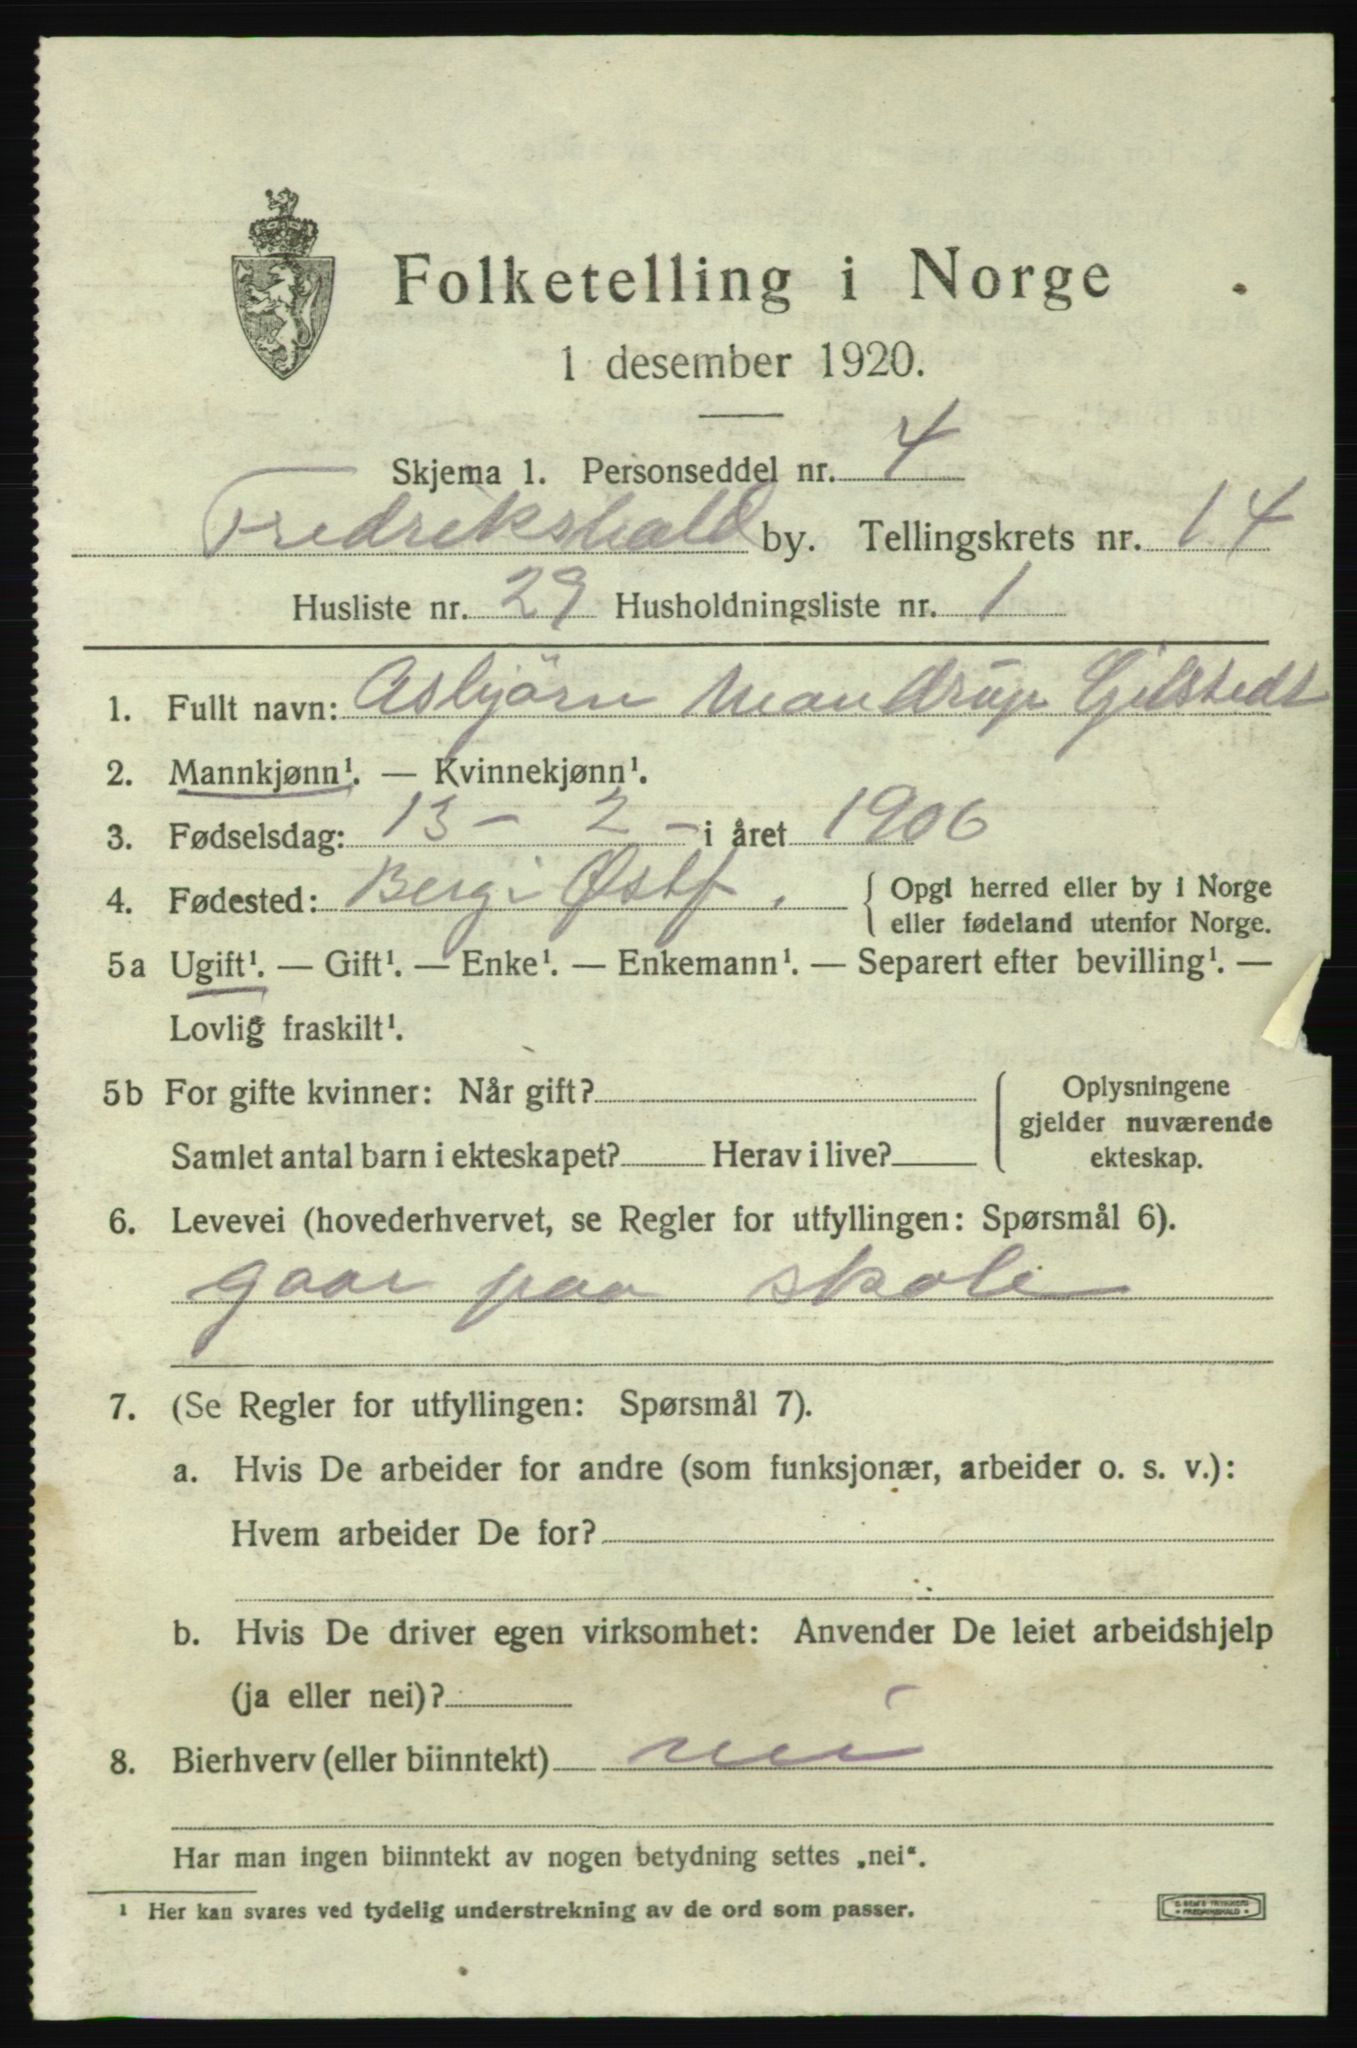 Folketelling i Norge
1 desember 1920.
Skjema 1. Personseddel nr. 4
Fredrikshald by. Tellingskrets nr. 14
Husliste nr. 29 Husholdningsliste nr. 1
1. Fullt navn: Asbjörn Mandrup Gjelstedt
2. Mannkjønn¹. — Kvinnekjønn¹.
3. Fødselsdag: 13 - 2 - i året 1906
4. Fødested: Berg i Østf. { Opgi herred eller by i Norge
eller fødeland utenfor Norge.
5a Ugift¹. — Gift¹. — Enke¹. — Enkemann¹. — Separert efter bevilling¹. —
Lovlig fraskilt¹.
5b For gifte kvinner: Når gift? { Oplysningene
gjelder nuværende
Samlet antal barn i ekteskapet? Herav i live? ekteskap.
6. Levevei (hovederhvervet, se Regler for utfyllingen: Spørsmål 6).
gaar paa skole
7. (Se Regler for utfyllingen: Spørsmål 7).
a. Hvis De arbeider for andre (som funksjonær, arbeider o. s. v.):
Hvem arbeider De for?
b. Hvis De driver egen virksomhet: Anvender De leiet arbeidshjelp
(ja eller nei)?
8. Bierhverv (eller biinntekt) nei
Har man ingen biinntekt av nogen betydning settes „nei".
¹ Her kan svares ved tydelig understrekning av de ord som passer.